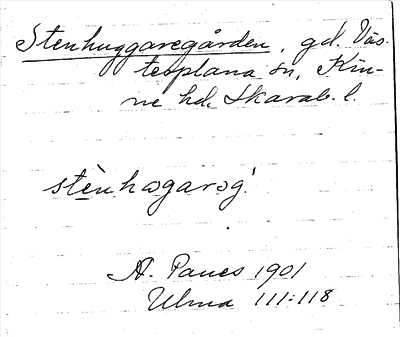 Stenhuggaregården, gd. Väs-
terplana sn, Kin-
ne hd. Skarab. l.
A. Paues 1901
Ulma 111:118